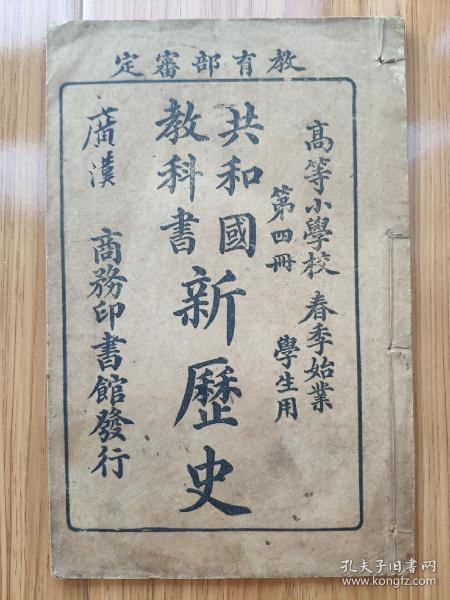 教育部審定
高等小學校 春季始業
第四冊 學生用
共和國
教科書
新歷史
廣漢 商務印書館發行
孔夫子旧书网
www.kongfz.com